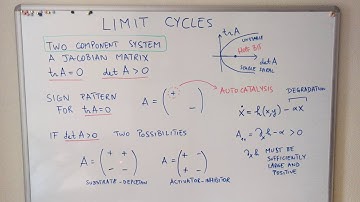 LIMIT CYCLES
TWO COMPONENT SYSTEM
A JACOBIAN MATRIX
trA=0 det A>0
trA
UNSTABLE
HOPF BIF
det A
STABLE SPIRAL
SIGN PATTERN
FOR trA=0
A = ( + − )
AUTOCATALYSIS
DEGRADATION
ẋ = h(x,y) − αx
IF det A>0 TWO POSSIBILITIES
A = ( + + − − )
SUBSTRATE-DEPLETION
A = ( + − + − )
ACTIVATOR-INHIBITOR
h − α > 0
MUST BE
SUFFICIENTLY
LARGE AND
POSITIVE